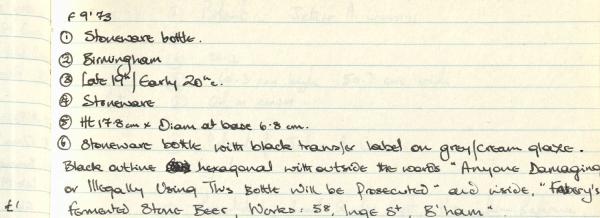 F 9'73
① Stoneware bottle.
② Birmingham
③ Late 19th/Early 20th c.
④ Stoneware
⑤ Ht 17.8 cm x Diam at base 6.8 cm.
⑥ Stoneware bottle with black transfer label on grey/cream glaze.
Black outline hexagonal with outside the words "Anyone Damaging
or Illegally Using This Bottle Will be Prosecuted" and inside. "
Fermented Stone Beer, Works: 58, Inge St, B'ham"
£1